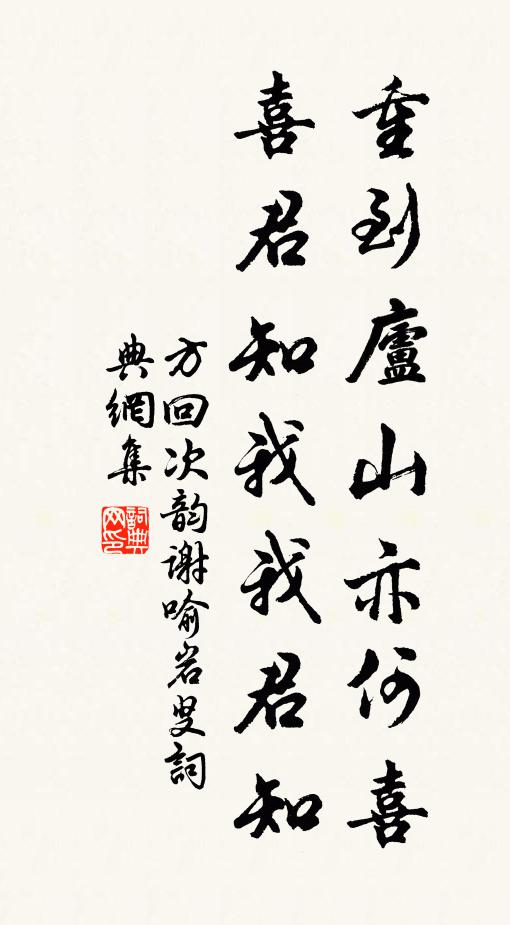 重到廬山亦何喜
喜君知我我君知
方回次韵谢喻岩叟詞
典網集
詞典网印